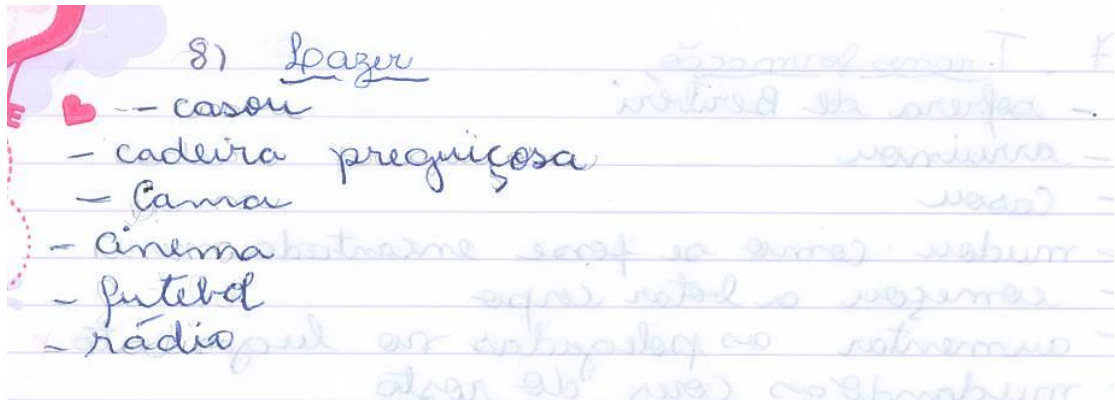 8) Lazer
-- casou
- cadeira preguiçosa
- Cama
- cinema
- futebol
- rádio